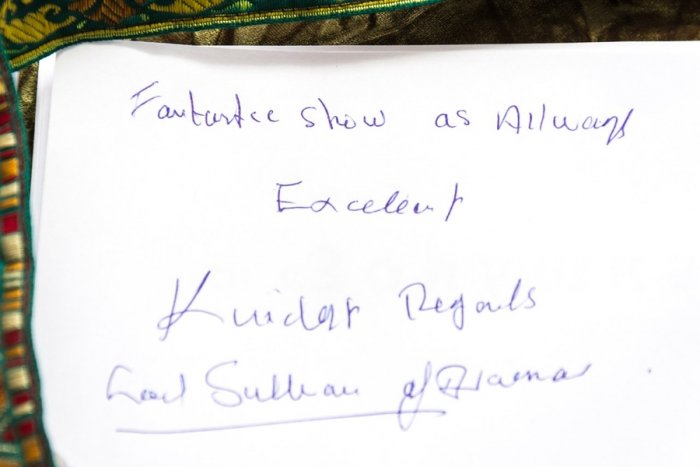 Fantastic show as Allways
Excelent
Kindest Regards
Sullivan of